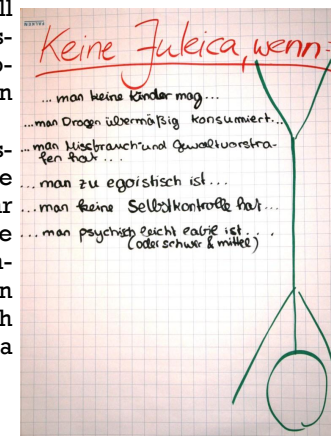 Keine Juleica, wenn
... man keine Kinder mag...
...man Drogen übermäßig konsumiert...
...man Missbrauch-und Gewaltvorstra-
fen hat...
...man zu egoistisch ist...
...man keine Selbstkontrolle hat...
...man psychisch leicht labil ist...
(oder schwer & mittel)
ll
s-
o-
n
s-
e
r
e
n
h
a